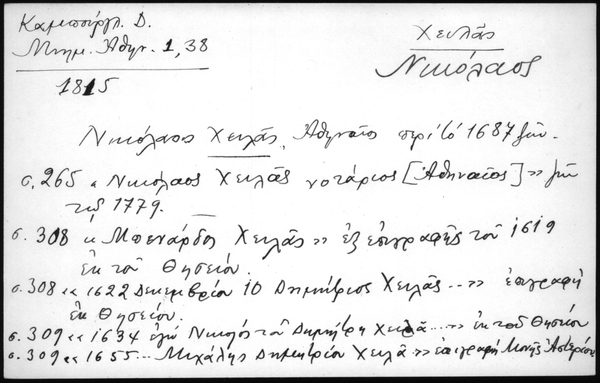 Καμπούργλ. Δ.
Μνημ. Αθην. 1, 38
1815
Χειλᾶς
Νικόλαος
Νικόλαος Χειλᾶς, Ἀθηναῖος περὶ τὸ 1687 ζῶν.
σ. 265 « Νικόλαος Χειλᾶς νοτάριος [Ἀθηναῖος] » ζῶν
τῷ 1779.
σ. 308 « Μπενάρδος Χειλᾶς » ἐξ ἐπιγραφῆς τοῦ 1519
ἐκ τοῦ Θησείου.
σ. 308 «« 1622 Δεκεμβρίου 10 Δημήτριος Χειλᾶς... » ἐπιγραφὴ
ἐκ Θησείου.
σ. 309 «« 1634 ἐγὼ Νικολὸς τοῦ Δημήτρη Χειλᾶ... » ἐκ τοῦ Θησείου
σ. 309 «« 1655... Μιχάλης Δημητρίου Χειλᾶ » ἐπιγραφὴ Μονῆς Ἀστερίου